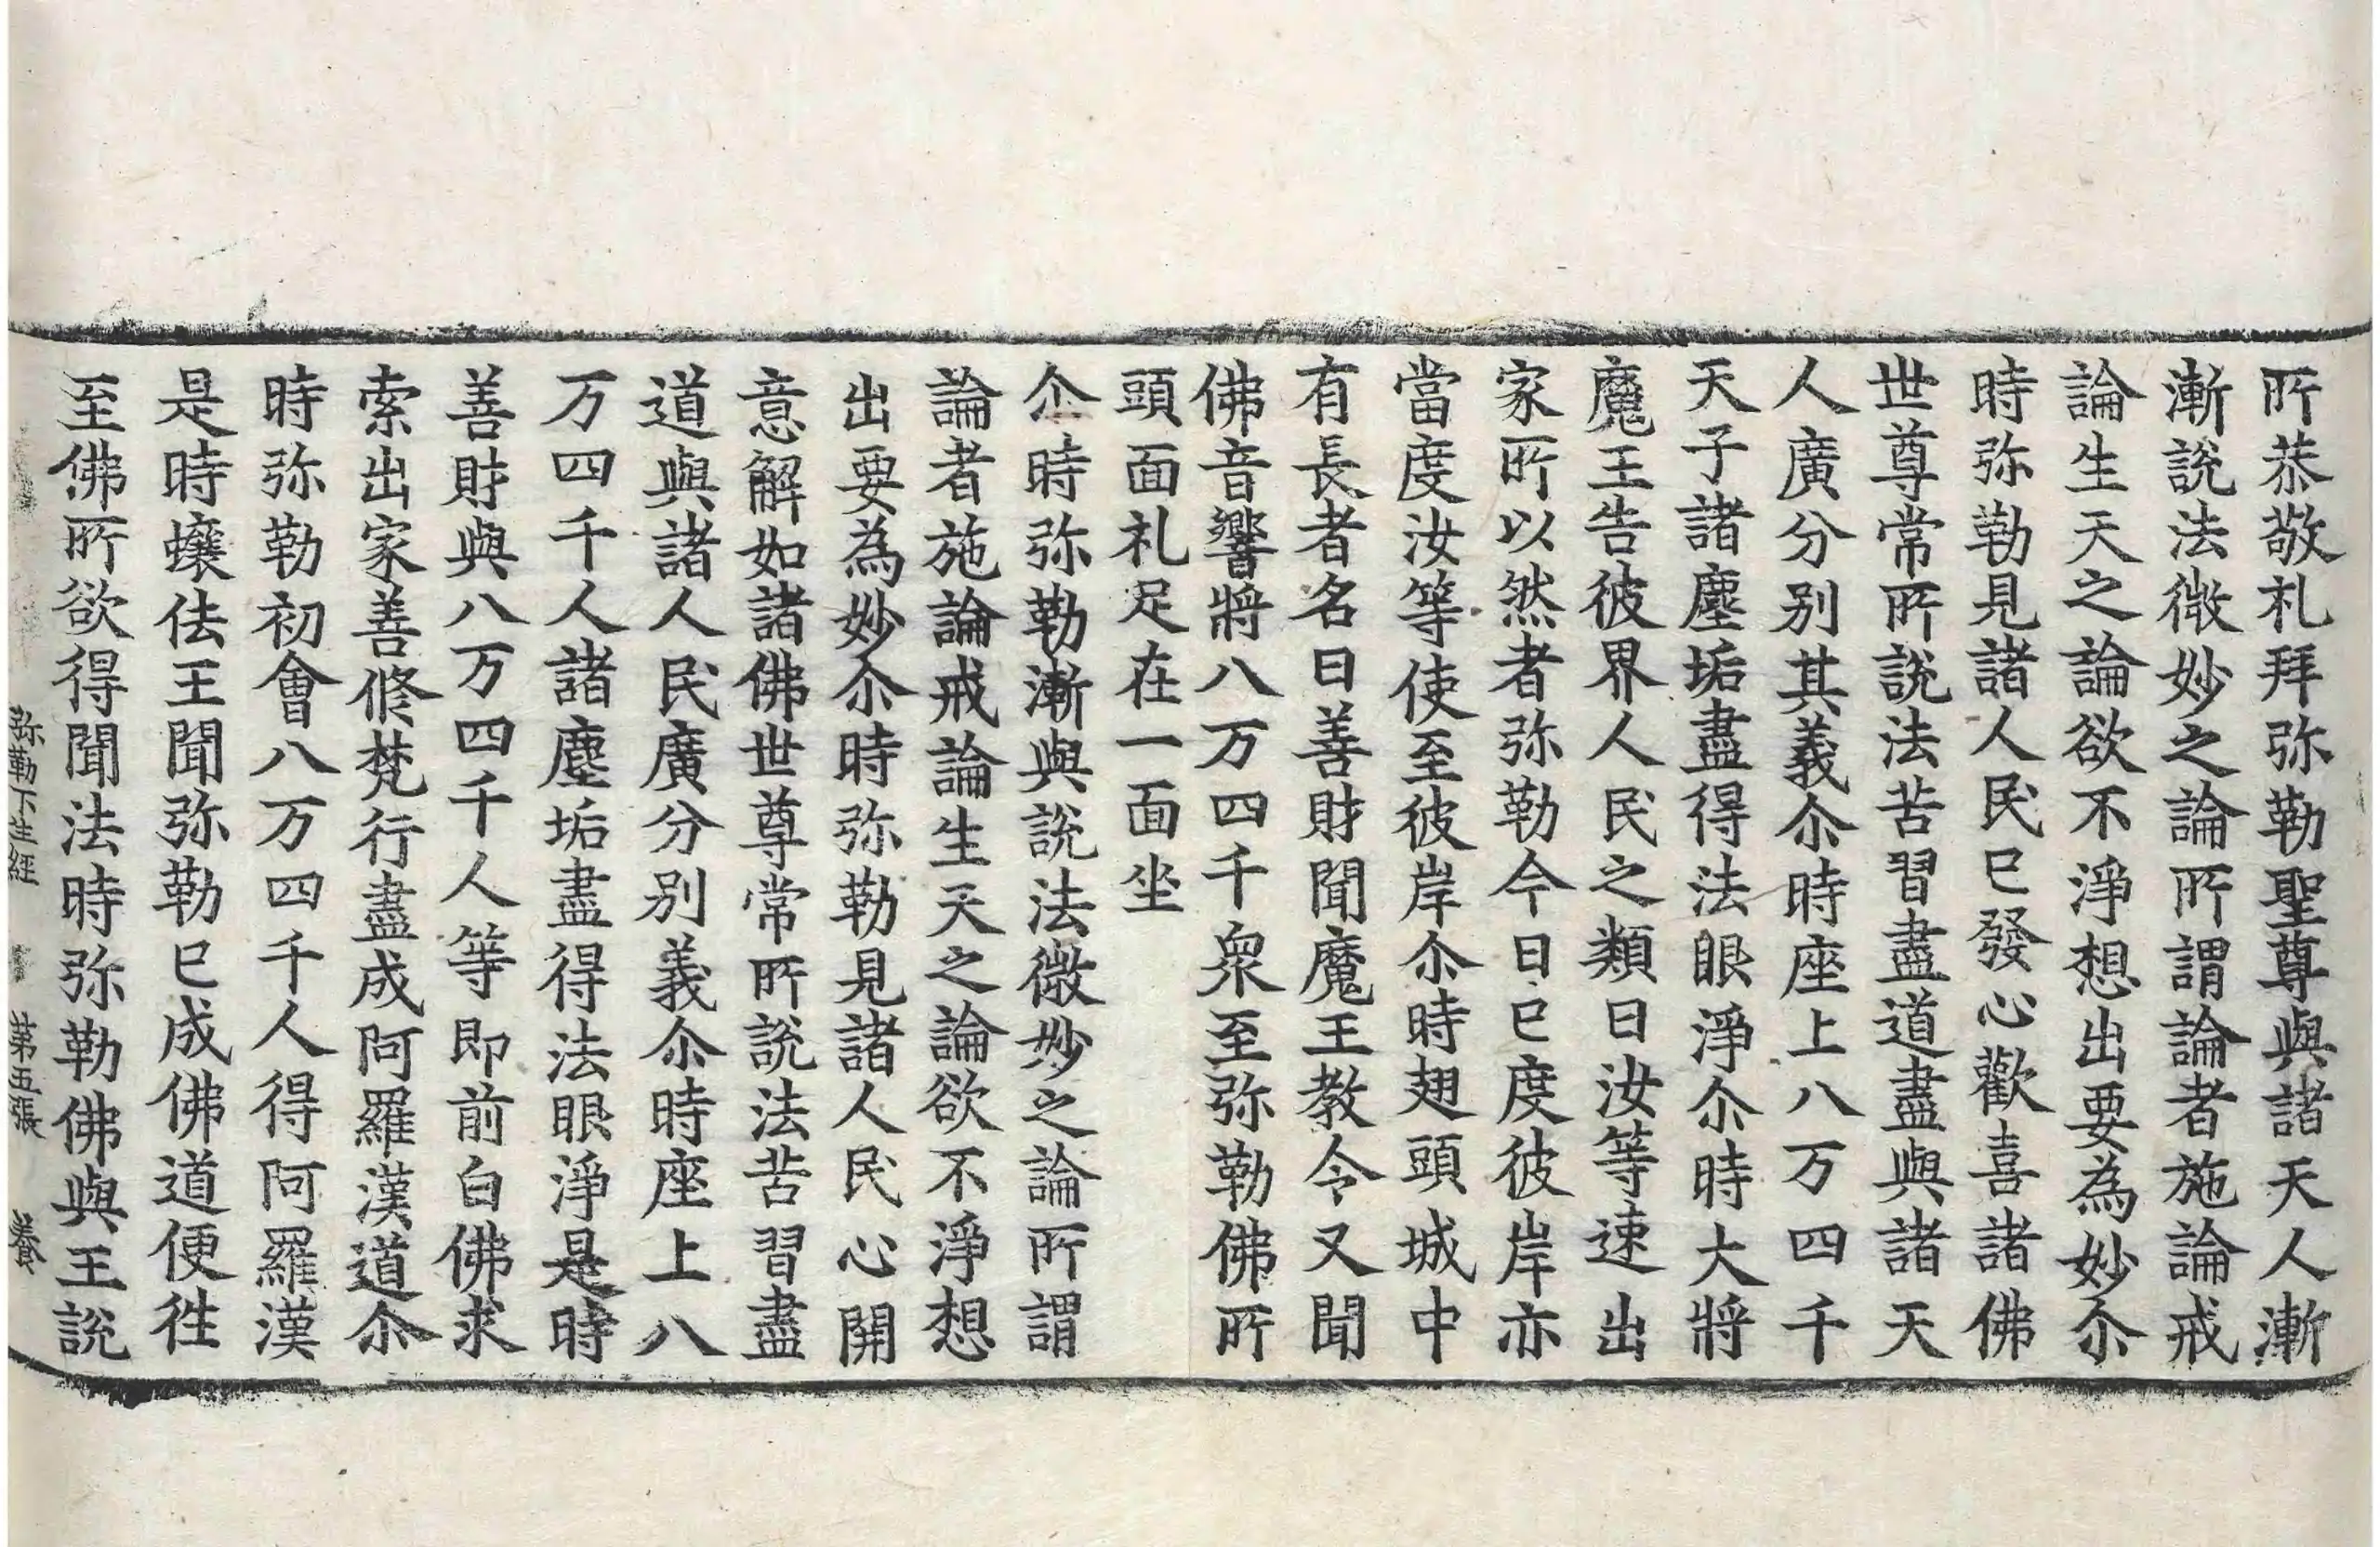 所恭敬礼拜弥勒聖尊與諸天人漸
漸說法微妙之論所謂論者施論戒
論生天之論欲不淨想出要為妙尒
時弥勒見諸人民已發心歡喜諸佛
世尊常所說法苦習盡道盡與諸天
人廣分别其義尒時座上八万四千
天子諸塵垢盡得法眼淨尒時大將
魔王告彼界人民之類曰汝等速出
家所以然者弥勒今日已度彼岸亦
當度汝等使至彼岸尒時翅頭城中
有長者名曰善財聞魔王教令又聞
佛音響將八万四千衆至弥勒佛所
頭面礼足在一面坐
尒時弥勒漸與說法微妙之論所謂
論者施論戒論生天之論欲不淨想
出要為妙尒時弥勒見諸人民心開
意解如諸佛世尊常所說法苦習盡
道與諸人民廣分别義尒時座上八
万四千人諸塵垢盡得法眼淨是時
善財與八万四千人等即前白佛求
索出家善修梵行盡成阿羅漢道尒
時弥勒初會八万四千人得阿羅漢
是時蠰佉王聞弥勒已成佛道便往
至佛所欲得聞法時弥勒佛與王說
弥勒下生經 第五張 養